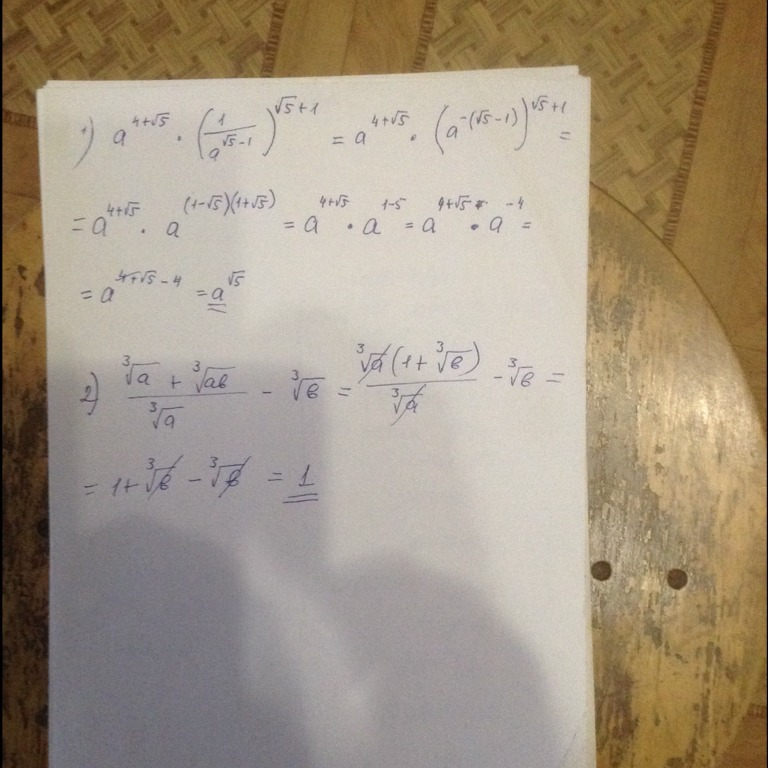 1) a^(4+√5) · (1/a^(√5-1))^(√5+1) = a^(4+√5) · (a^(-(√5-1)))^(√5+1) =
= a^(4+√5) · a^((1-√5)(1+√5)) = a^(4+√5) · a^(1-5) = a^(4+√5) · a^(-4) =
= a^(4+√5-4) = a^(√5)
2) (∛a + ∛ab)/∛a - ∛b = ∛a(1+∛b)/∛a - ∛b =
= 1+∛b - ∛b = 1